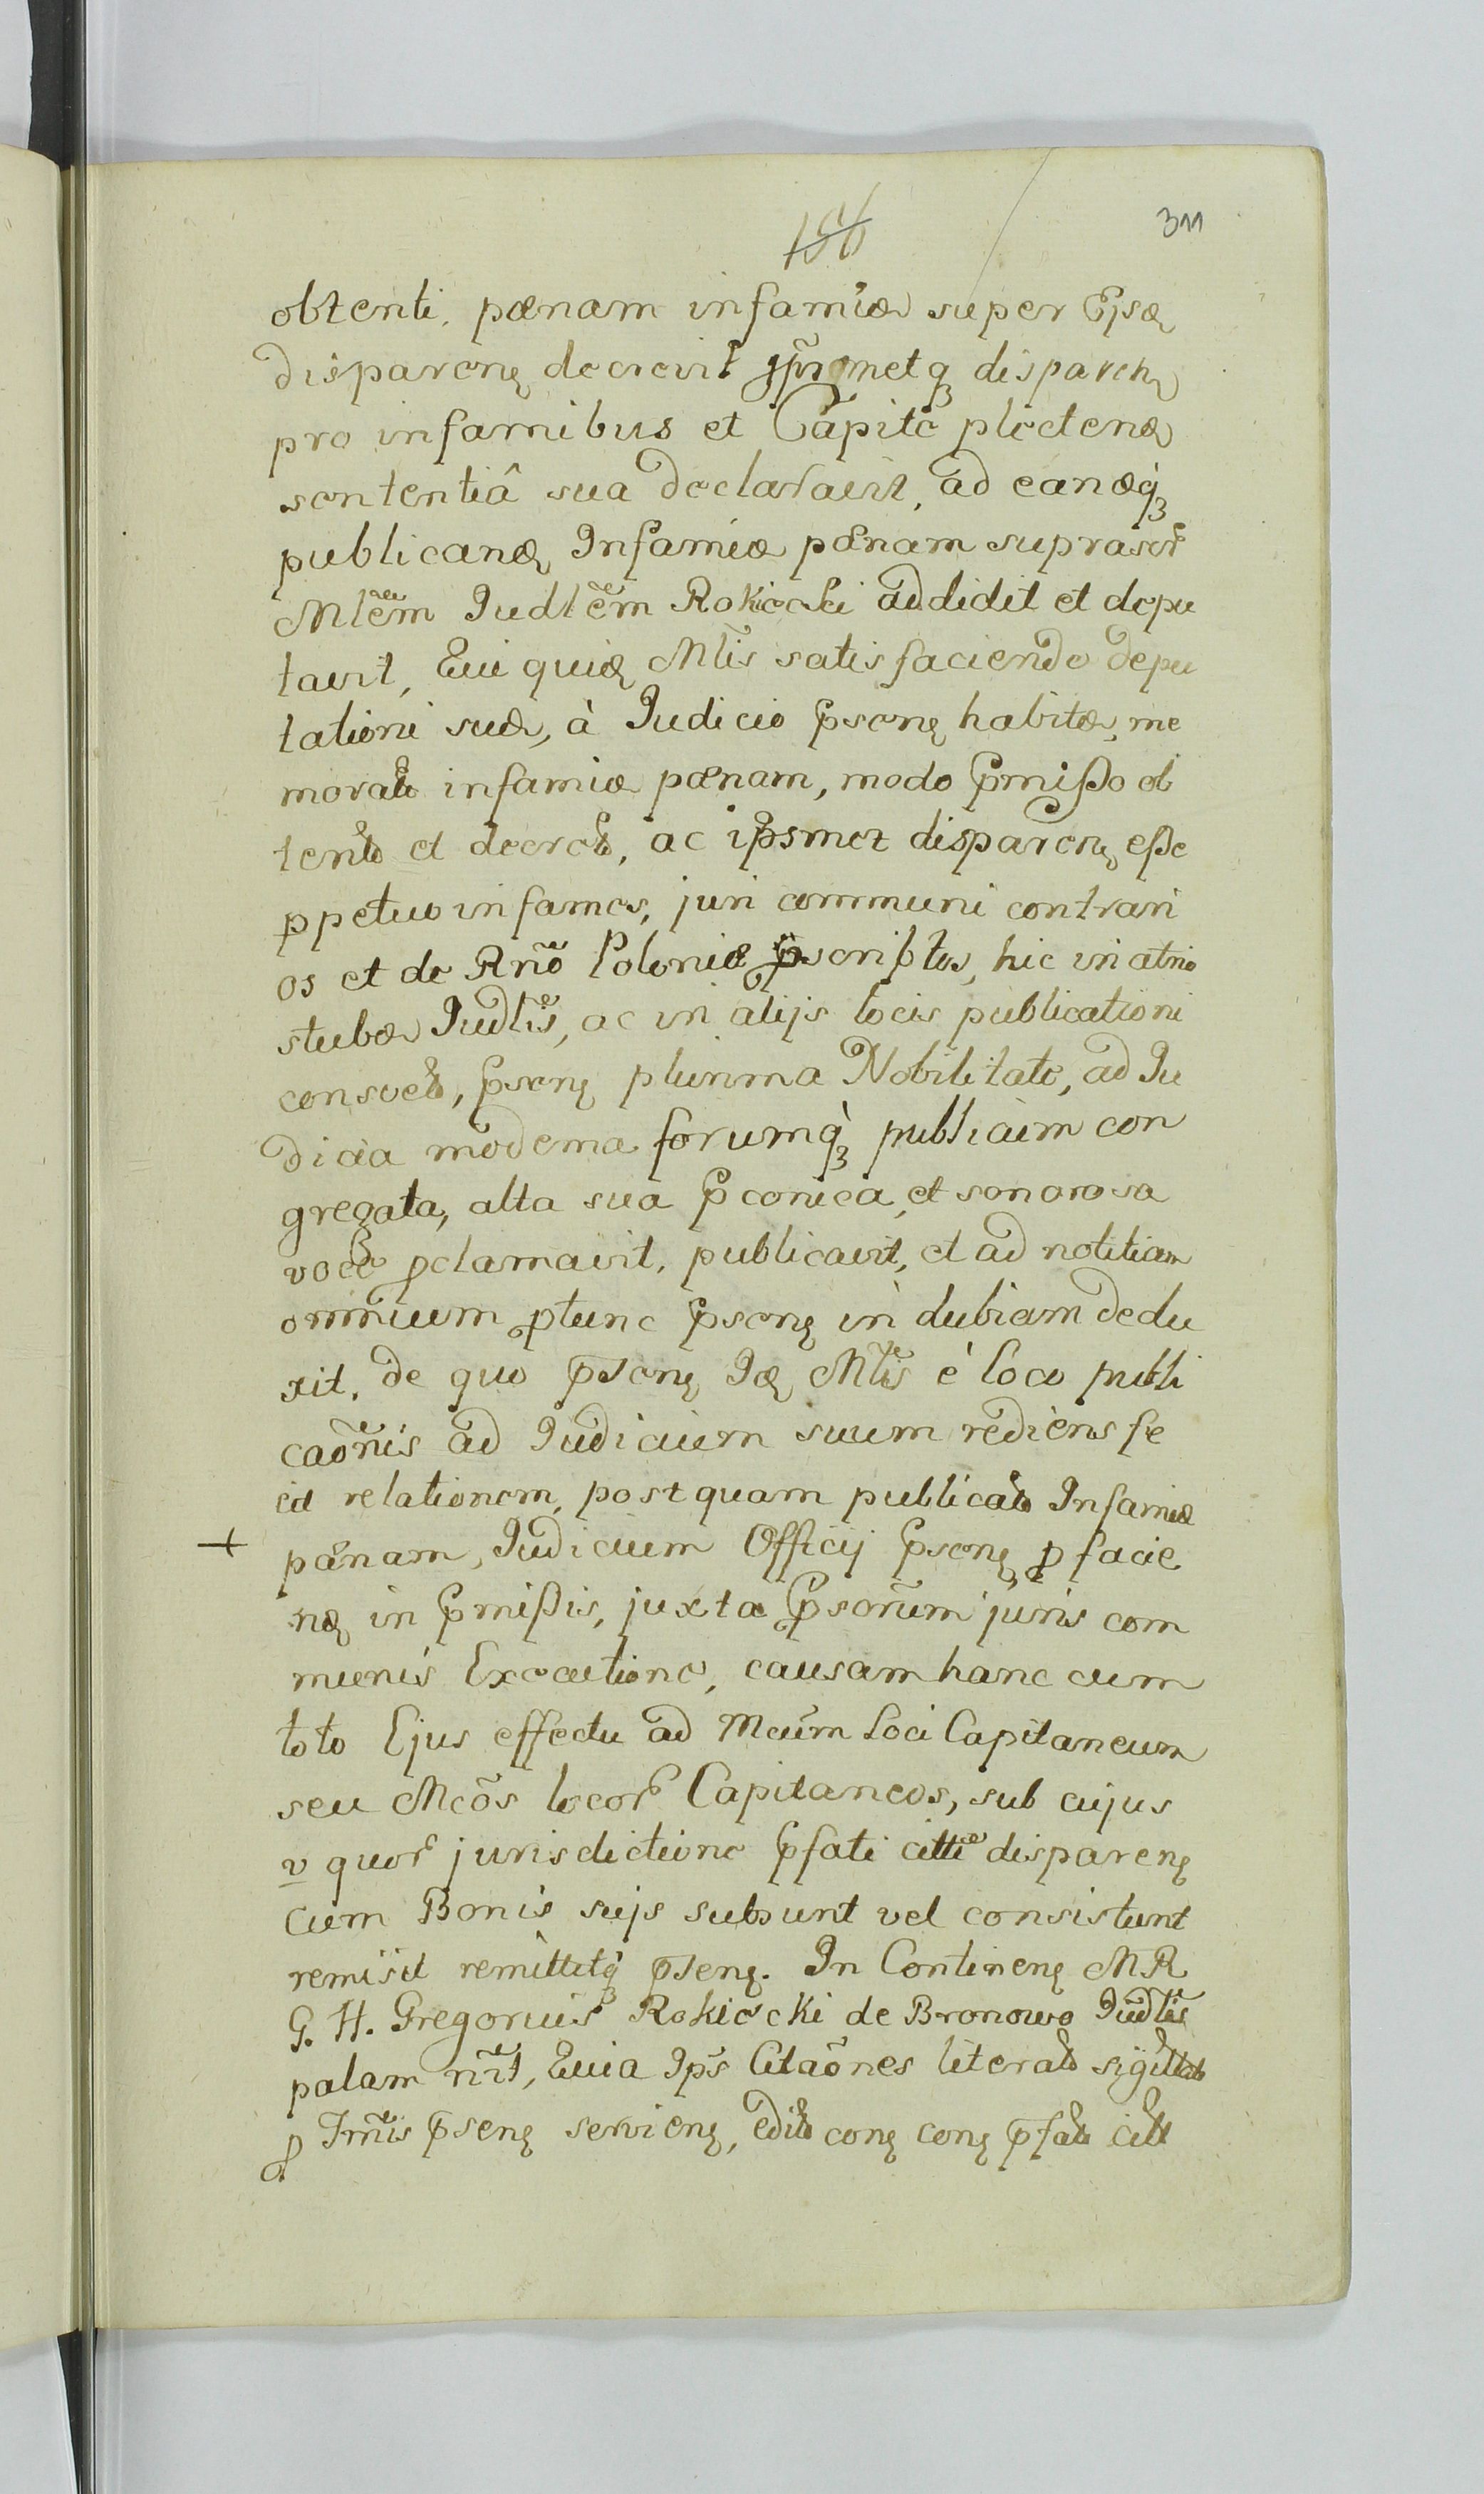 156 311
obtenti, pœnam infamiæ super Ejsdę
disparenę decrevit ipsosmetq₃ disparenę
pro infamibus et Capite plectendę
sententiâ sua declaravit, ad eandęq₃
publicandę Infamiæ pœnam suprascr̃
Mlẽm Judlẽm Rokicki addidit et depu
tavit, Qui quidę Mlis satisfaciendo depu
tationi suæ, à Judicio p̃senę habitæ, me
morată infamiæ pœnam, modo p̃mißo ob
tentă et decretă, ac ipsosmet disparenę eße
ꝑpetuo infames, juri communi contrari
os et de Rño Poloniæ ꝓscriptos, hic in atrio
stubæ Judlis, ac in alijs locis publicationi
consvetă, p̃senę plurima Nobilitate, ad Ju
dicia moderna forumq₃ publicum con
gregata, alta sua p̃conica et sonorosa
voce ꝓclamavit, publicavit, et ad notitiam
omnium ꝓtunc p̃senę in dubiam dedu
xit, de quo p̃senę Idę Mlis è loco publi
caõnis ad Judicium suum rediens fe
cit relationem, postquam publicată Infamiæ
+ pœnam, Judicium Officij p̃senę ꝓ facie
ndę in p̃mißis, juxta p̃sorum juris com
munis Executione, causam hanc cum
toto Ejus effectu ad Mcũm loci Capitaneum
seu Mcõs locor̃ Capitaneos, sub cujus
v quor̃ jurisdictione p̃fati citti disparenę
cum Bonis suis subsunt vel consistunt
remisit remittitq₃ p̃senę. In Continenę MR
G. H. Gregorius Rokicki de Bronowo Judlis
palam rñt, Quia Ips Citaõnes literată sigillată
ꝓ Tmis p̃senę servienę, edită conę conę p̃fată citt